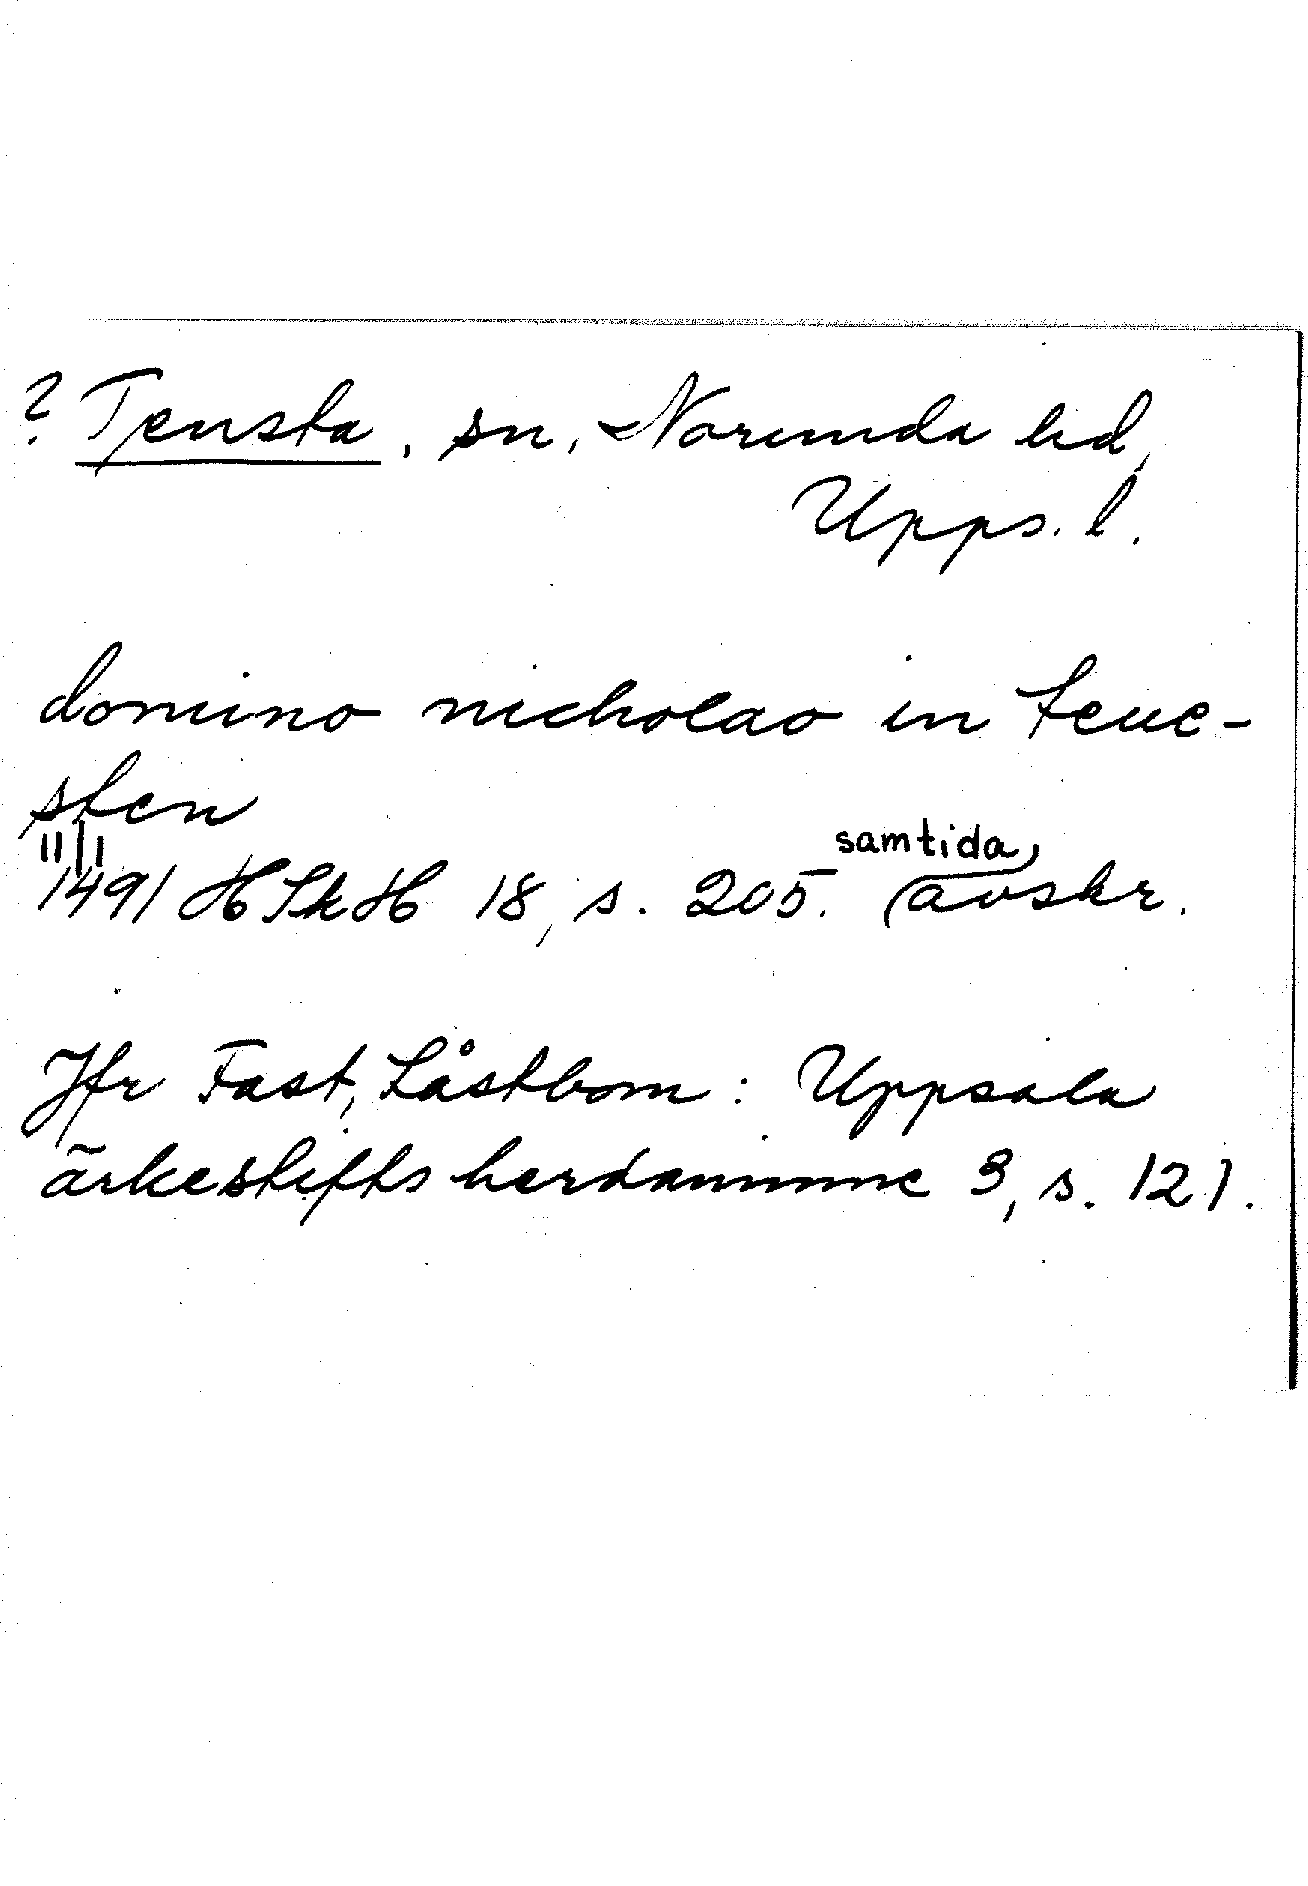 ? Tensta, sn, Norunda hd,
Upps. l.
domino nicholao in tene-
sten
1491 HSkH 18, s. 205. samtida avskr.
Jfr Fast, Låstbom: Uppsala
ärkestifts herdaminne 3, s. 121.